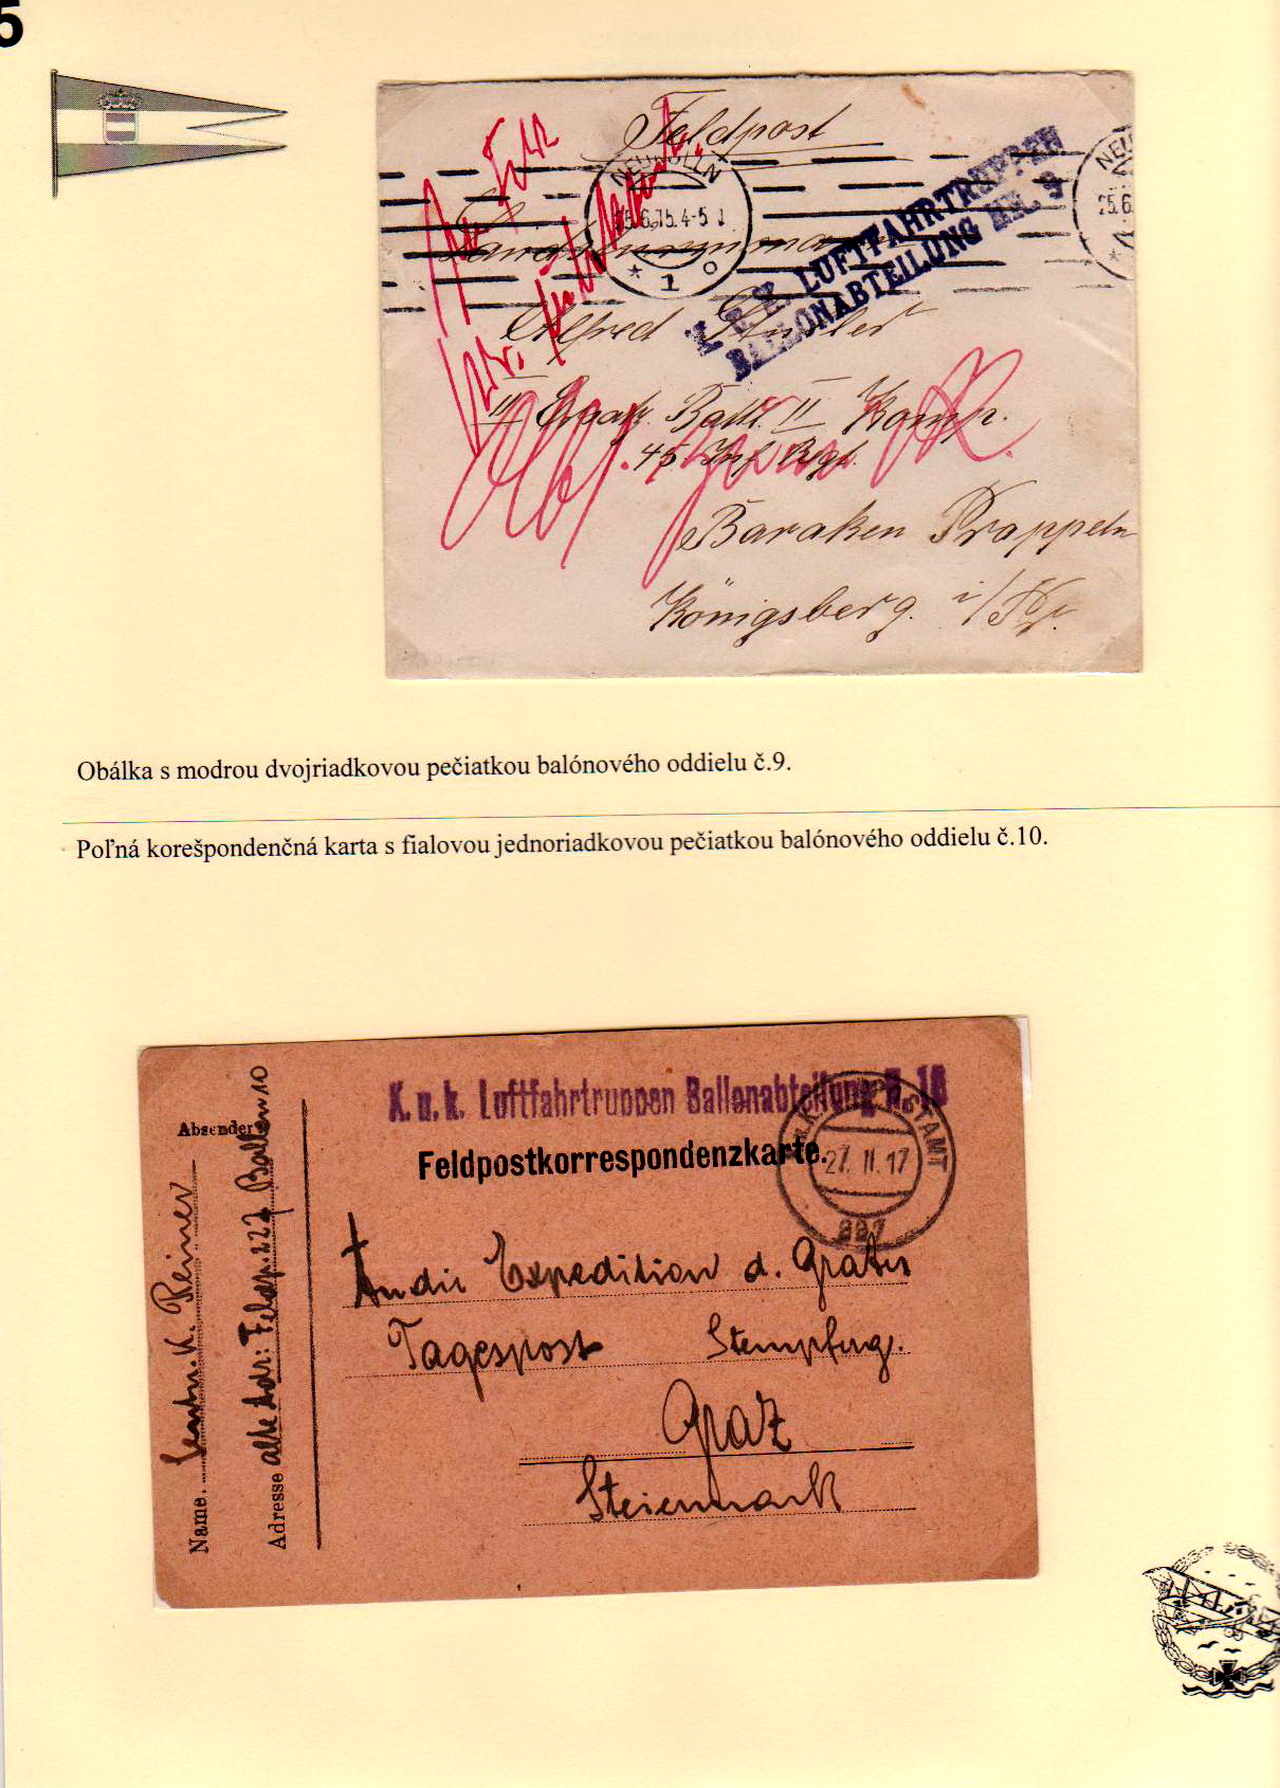 5
Feldpost
NEUKÖLLN
25.6.15.4-5 N
* 1 o
NE
25.6
K. U. K. LUFTFAHRTRUPPEN
BALLONABTEILUNG NR. 9
Alfred
III Ersatz Batl. II Komp.
45 Inf Rgt.
Baraken Prappeln
Königsberg. i/Pr.
Obálka s modrou dvojriadkovou pečiatkou balónového oddielu č.9.
Poľná korešpondenčná karta s fialovou jednoriadkovou pečiatkou balónového oddielu č.10.
K. u. k. Luftfahrtruppen Ballonabteilung N. 10
Feldpostkorrespondenzkarte.
27. II. 17
227
Absender
Name K. Reiner
Adresse alte Adr: Feldp. 227 Ballon 10
An die Expedition d. Grazer
Tagespost Stempferg.
Graz
Steiermark